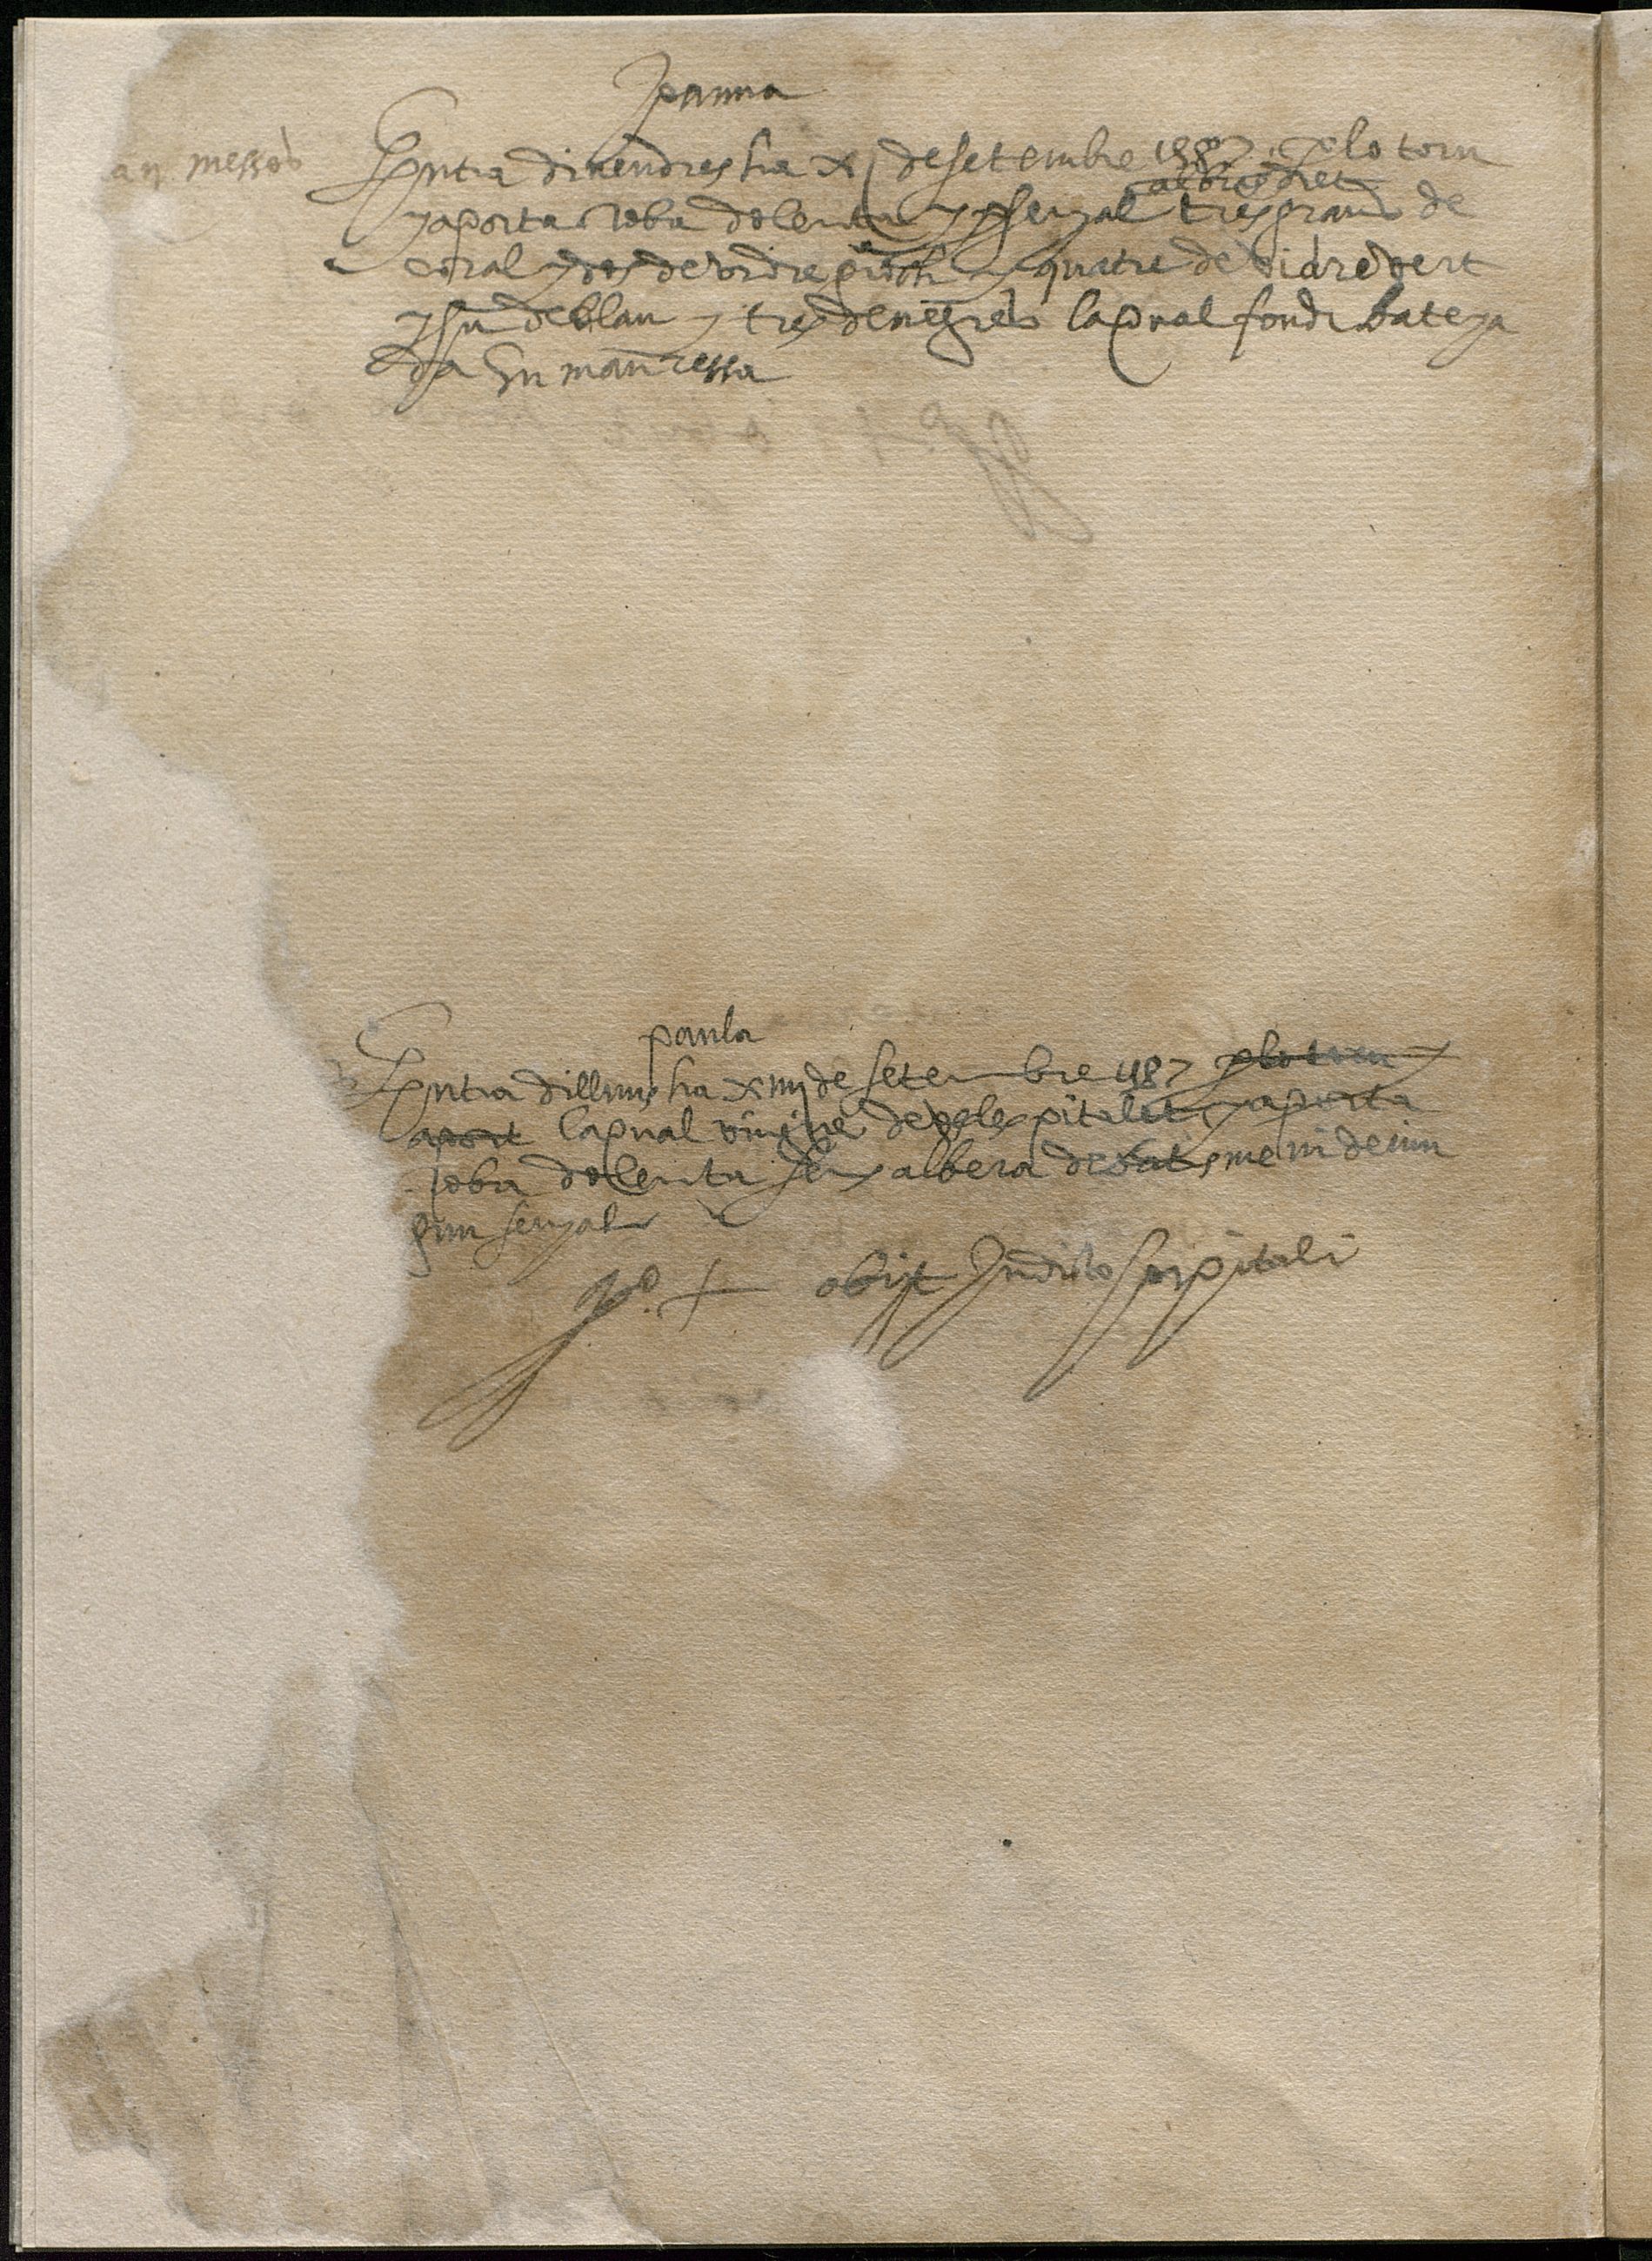 Joanna
messos
Entra divendres ha xj de setembre 1587 p lo torn
y aporta roba dolenta y p senyal tres grans de
coral y dos de vidre y quatre de vidre vert
y hu de blau y tres de negres la qual fonch bateya
da en manressa
paula
Entra dilluns ha xiiij de setembre 1587 p lo torn y
aport la qual vingue de y aporta
roba dolenta sens albera de batisme ni de nin
gun senyal
obijt In dicto hospitali